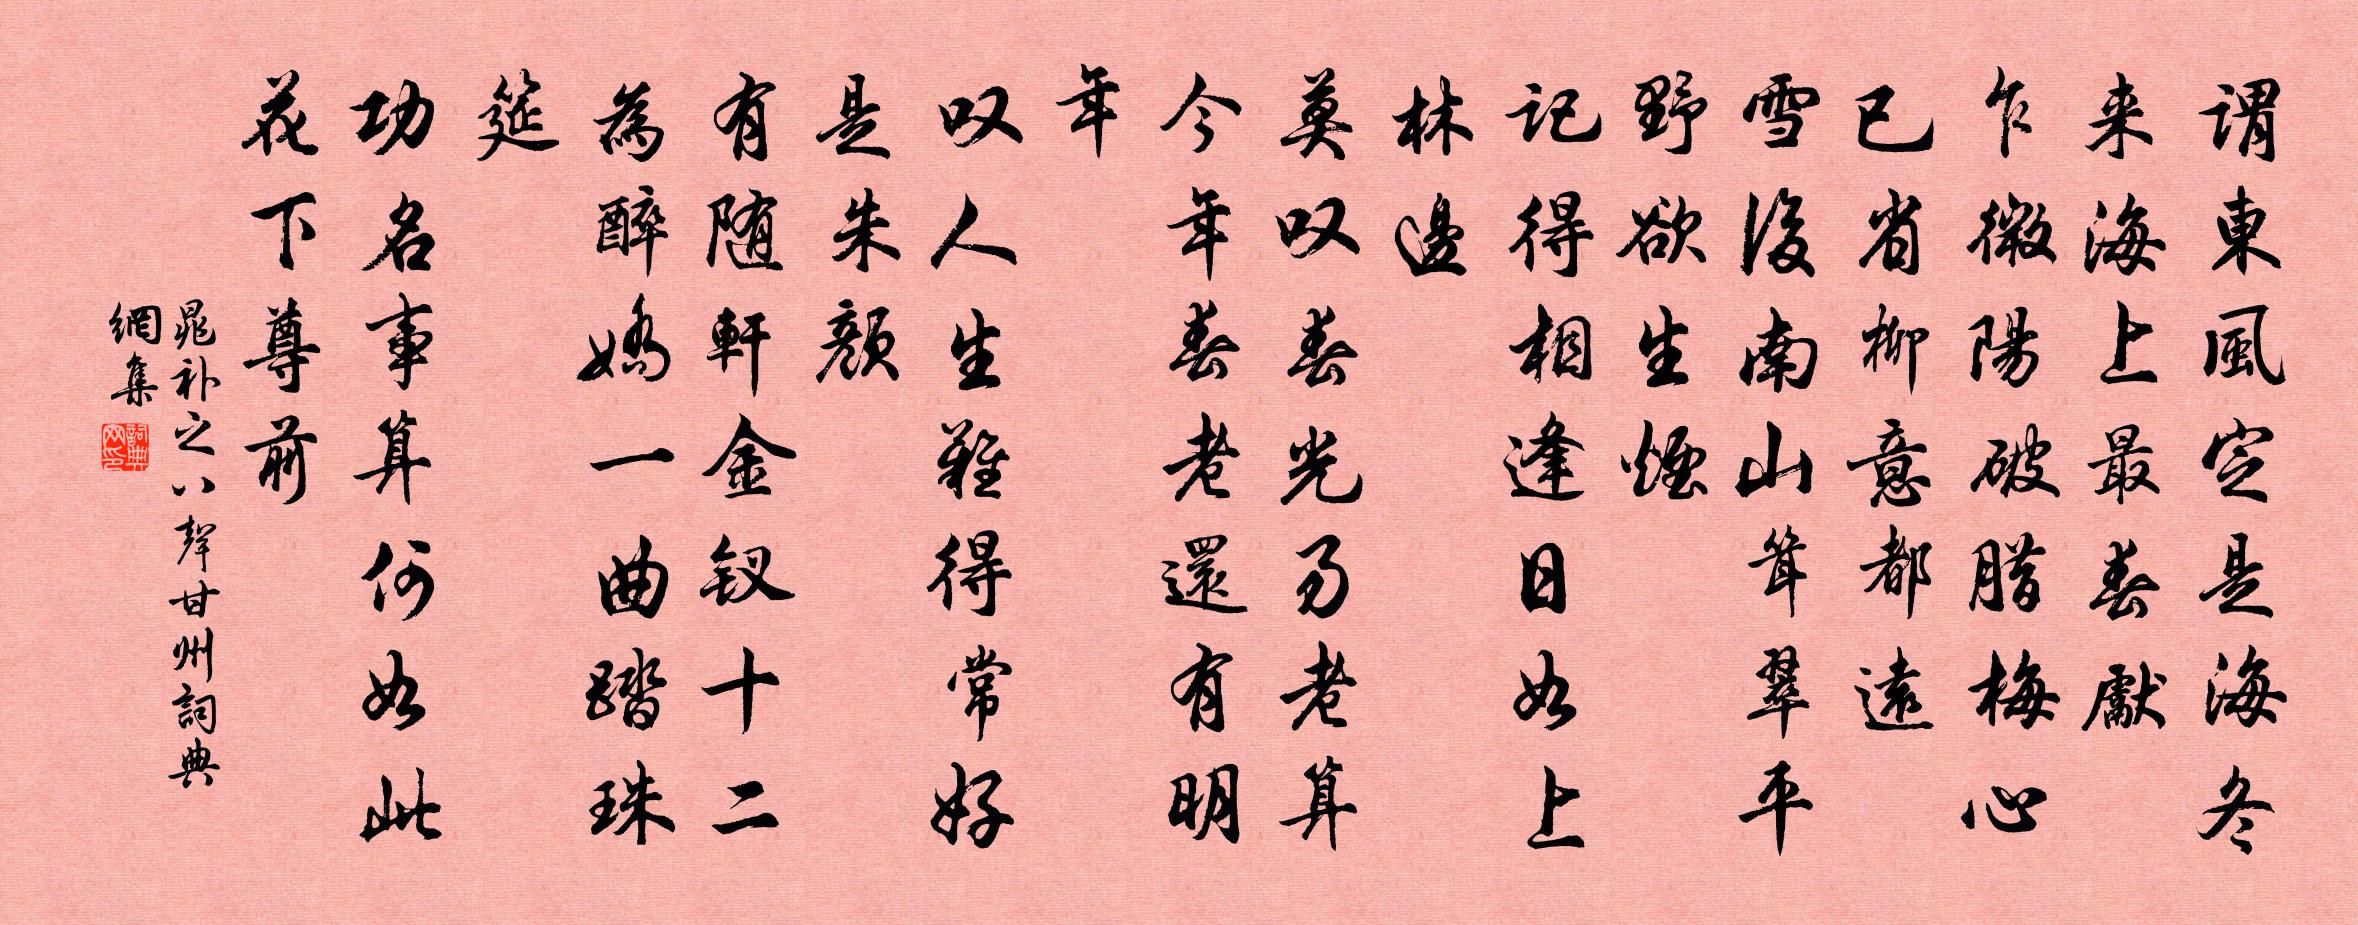 謂東風定是海冬
来海上最春獻
乍微陽破腊梅心
已省柳意都遠
雪後南山耸翠平
野欲生煙
記得相逢日如上
林邊
莫叹春光易老算
今年春老還有明
年
叹人生難得常好
是朱顏
有随軒金钗十二
為醉嬌一曲踏珠
筵
功名事算何如此
花下尊前
晁补之八聲甘州詞典
網集
詞典网印